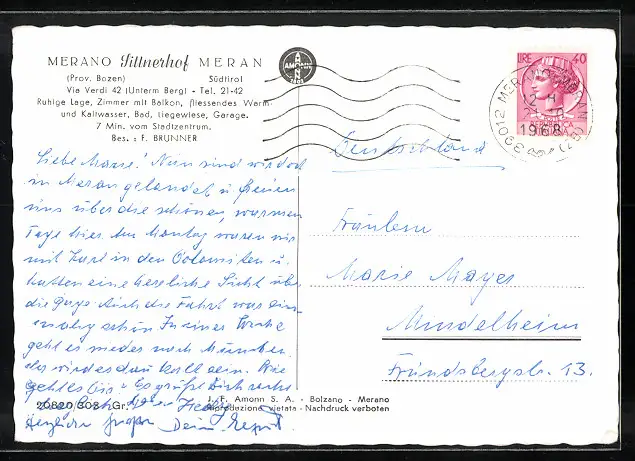 MERANO Sittnerhof MERAN
(Prov. Bozen) Südtirol
Via Verdi 42 (Unterm Berg) - Tel. 21-42
Ruhige Lage, Zimmer mit Balkon, fliessendes Warm-
und Kaltwasser, Bad, Liegewiese, Garage.
7 Min. vom Stadtzentrum.
Bes.: F. BRUNNER
AMONN
LIRE 40
39012 MERANO-MERAN (BZ)
1968
Liebe Nun sind wir
in Meran gelandet u. freuen
uns über die schönen, warmen
Tage hier. Am Montag waren wir
mit Karl in den Dolomiten u.
hatten eine herrliche Sicht über
die Auch die Fahrt war ein-
malig schön. In einer Woche
geht es wieder nach München,
da wird es dann kalt sein. Wie
geht es Dir? Es grüßt Dich
Herzliche Grüße Dein
Deutschland
Fräulein
Marie Mayer
Mindelheim
Frundsbergstr. 13.
20820/308 - Gr.
J. F. Amonn S. A. - Bolzano - Merano
Riproduzione vietata - Nachdruck verboten